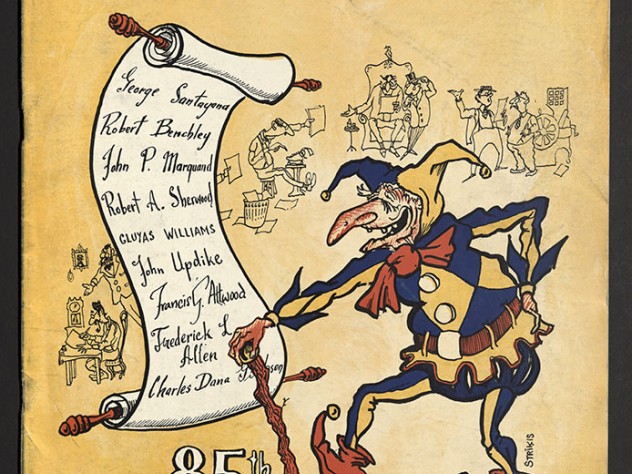 George Santayana
Robert Benchley
John P. Marquand
Robert A. Sherwood
GLUYAS WILLIAMS
John Updike
Francis G. Attwood
Frederick L.
Allen
Charles Dana
85th
STRIKIS